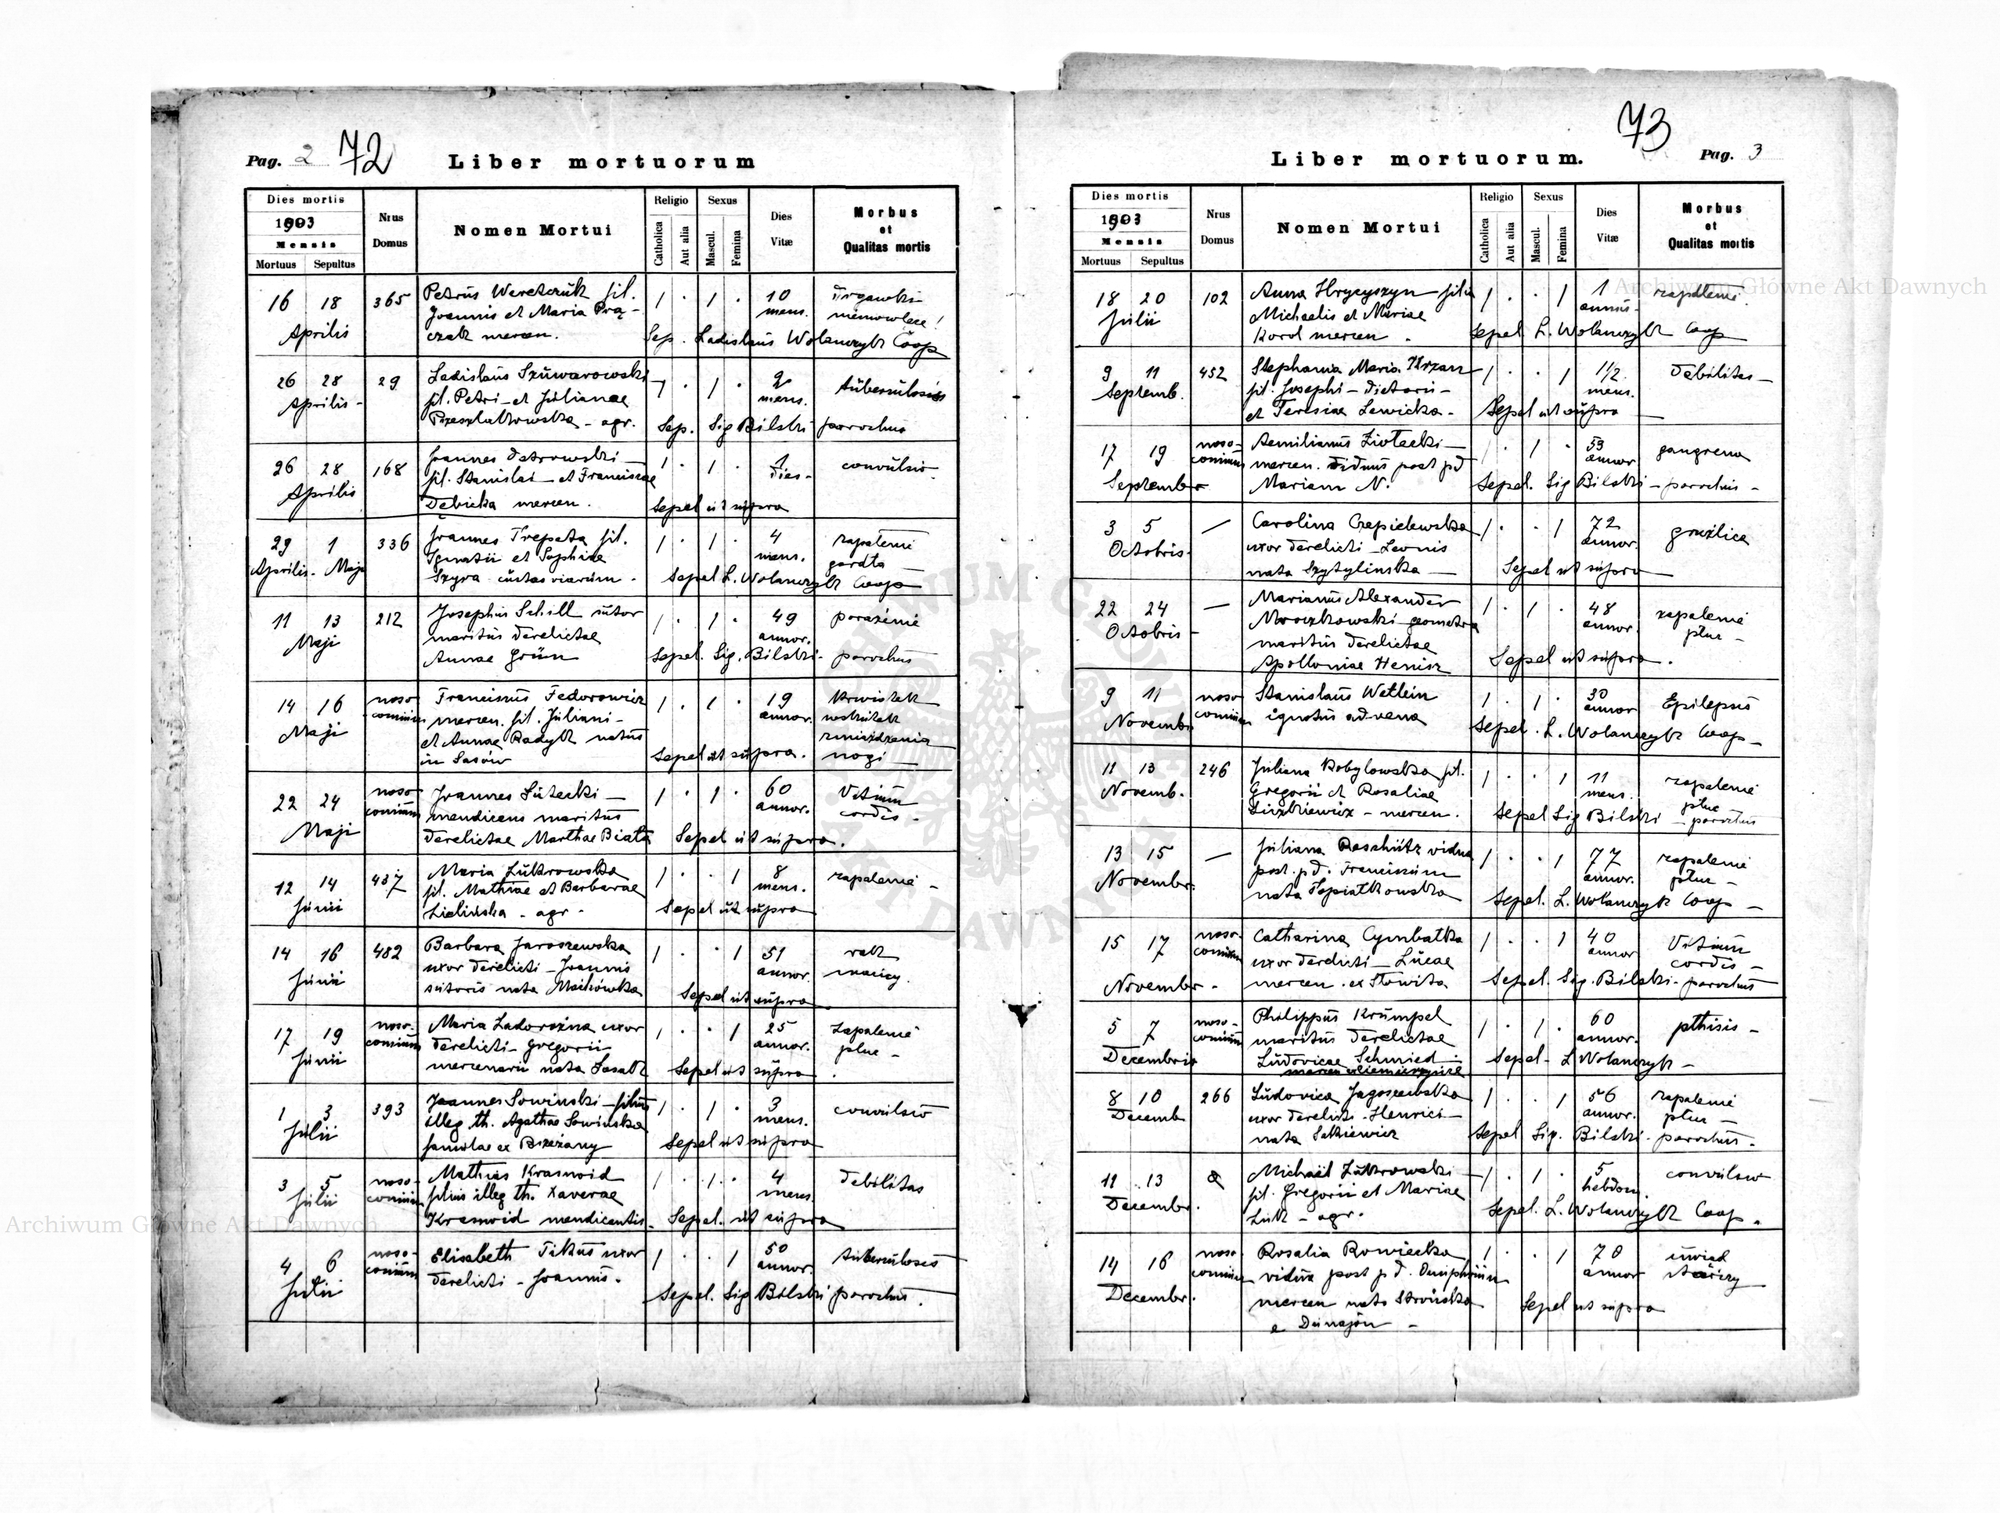 Pag. 2 72 Liber mortuorum
Dies mortis
1903
Mensis
Mortuus Sepultus
Nrus Domus
Nomen Mortui
Religio
Catholica
Aut alia
Sexus
Mascul.
Femina
Dies Vitæ
Morbus et Qualitas mortis
16 18 365 Petrus Weretczuk fil. 1 . 1 . 10
Joannis et Maria Prą- mens.
Aprilis czak mercen. Sep. Ladislaus Wolanczyk Coop
26 28 29 Ladislaus Szuwarowski 1 . 1 . 2 tuberculosis
Aprilis - fil. Petri et Julianae mens.
agr. Sep. Sig Bilski parochus
26 28 168 Joannes 1 . 1 . 1 convulsio
Aprilis fil. Stanislai et Franciscae dies -
Debicka mercen. Sepel ut supra
29 1 336 Joannes Trepeta fil. 1 . 1 . 4 zapalenie
Aprilis - Maji Ignatii et Sophiae mens. gardła
Szyra custos viarum - Sepel L. Wolanczyk Coop
11 13 212 Josephus Schill sutor 1 . 1 . 49 porażenie
Maji maritus derelictae annor.
Annae Grün Sepel. Sig. Bilski - parochus
14 16 noso- Franciscus Fedorowicz 1 . 1 . 19 Krwistek
Maji comium mercen. fil. Juliani - annor. wskutek
et Annae Radyk natus zmiażdżenia
in Sasów Sepel ut supra. nogi
22 24 noso- Joannes Sutecki 1 . 1 . 60 Vitium
Maji comium mendicens maritus annor. cordis -
derelictae Marthae Biała Sepel ut supra.
12 14 437 Maria Lukrowska 1 . . 1 8 zapalenie -
Junii fil. Mathiae et Barbarae mens.
Zielińska - agr - Sepel ut supra
14 16 482 Barbara Jaroszewska 1 . . 1 51 rak
Junii uxor derelicti - Joannis annor. macicy.
sutoris nata Sepel ut supra
17 19 noso- Maria Zadorożna uxor 1 . . 1 25 Zapalenie
Junii comium derelicti - Gregorii annor. płuc -
mercenarii nata Sasak Sepel ut supra
1 3 393 Joannes Sowinski - filius 1 . 1 . 3 convulsio
Julii illeg th. Agathae Sowinska mens.
famulae ex Brzeżany Sepel ut supra
3 5 noso- Mathias Krasnoid 1 . 1 . 4 debilitas
Julii comium filius illeg th. Xaverae mens.
Krasnoid mendicantis - Sepel. ut supra
4 6 noso- Elisabeth Titus uxor 1 . . 1 50 tuberculosis
Julii comium derelicti - Joannis - annor.
Sepel. Sig Bilski parochus.
Liber mortuorum. 73 Pag. 3
Dies mortis
1903
Mensis
Mortuus Sepultus
Nrus Domus
Nomen Mortui
Religio
Catholica
Aut alia
Sexus
Mascul.
Femina
Dies Vitæ
Morbus et Qualitas mortis
18 20 102 Anna Hrycyszyn filia 1 . . 1 1 zapalenie
Julii Michaelis et Mariae annus -
Korol mercen. Sepel L. Wolanczyk Coop
9 11 452 Stephania Maria Krzan 1 . . 1 1/2 debilitas -
Septemb. fil. Josephi - - mens.
et Teresiae Lewicka - Sepel ut supra
17 19 noso- Aemilianus 1 . 1 . 59 gangrena
comium mercen. viduus post pd annor
Septembr Mariam N. Sepel. Sig Bilski - parochus -
3 5 - Carolina Czepielewska 1 . . 1 72 gruźlica
Octobris - uxor derelicti - Leonis annor.
nata Szytylinska - Sepel ut supra
22 24 - Marianus Alexander 1 . 1 . 48 zapalenie
Octobris - Mroczkowski geometra annor. płuc -
maritus derelictae
Apolloniae Henisz Sepel ut supra.
9 11 noso- Stanislaus Wetlein 1 . 1 . 30 Epilepsis
Novembr comium ignotus advena annor
Sepel. L. Wolanczyk Coop -
11 13 246 Juliana Kobylowska fil. 1 . . 1 11 zapalenie
Novemb. Gregorii et Rosaliae mens. płuc
Liszkiewicz - mercen. Sepel Sig Bilski - parochus
13 15 - Juliana Raschütz vidua 1 . . 1 77 zapalenie
Novembr. post. pd. Franciscum annor. płuc -
nata Sepel. L. Wolanczyk Coop -
15 17 noso- Catharina Cymbałka 1 . . 1 40 Vitium
comium uxor derelicti - Lucae annor cordis -
Novembr - mercen. ex Słowita Sepel. Sig. Bilski - parochus
5 7 noso- Philippus Krumpel 1 . 1 . 60 pthisis -
Decembris comium maritus derelictae annor.
Ludovicae Schmied Sepel - L Wolanczyk -
8 10 266 Ludovica Jagoszewska 1 . . 1 56 zapalenie
Decemb uxor derelicti - Henrici - annor. płuc -
nata Sepel Sig. Bilski - parochus -
11 13 Michael Lukrowski 1 . 1 . 5 convulsio
Decembr. fil. Gregorii et Mariae hebdom.
Luk - agr. Sepel. L. Wolanczyk Coop.
14 16 noso- Rosalia Rowiecka 1 . . 1 70 uwiąd
comium vidua post pd. Onuphrium annor starczy
Decembr. mercen nata Sepel ut supra
e Dunajów -
Archiwum Główne Akt Dawnych
Archiwum Główne Akt Dawnych
ARCHIWUM GŁÓWNE AKT DAWNYCH